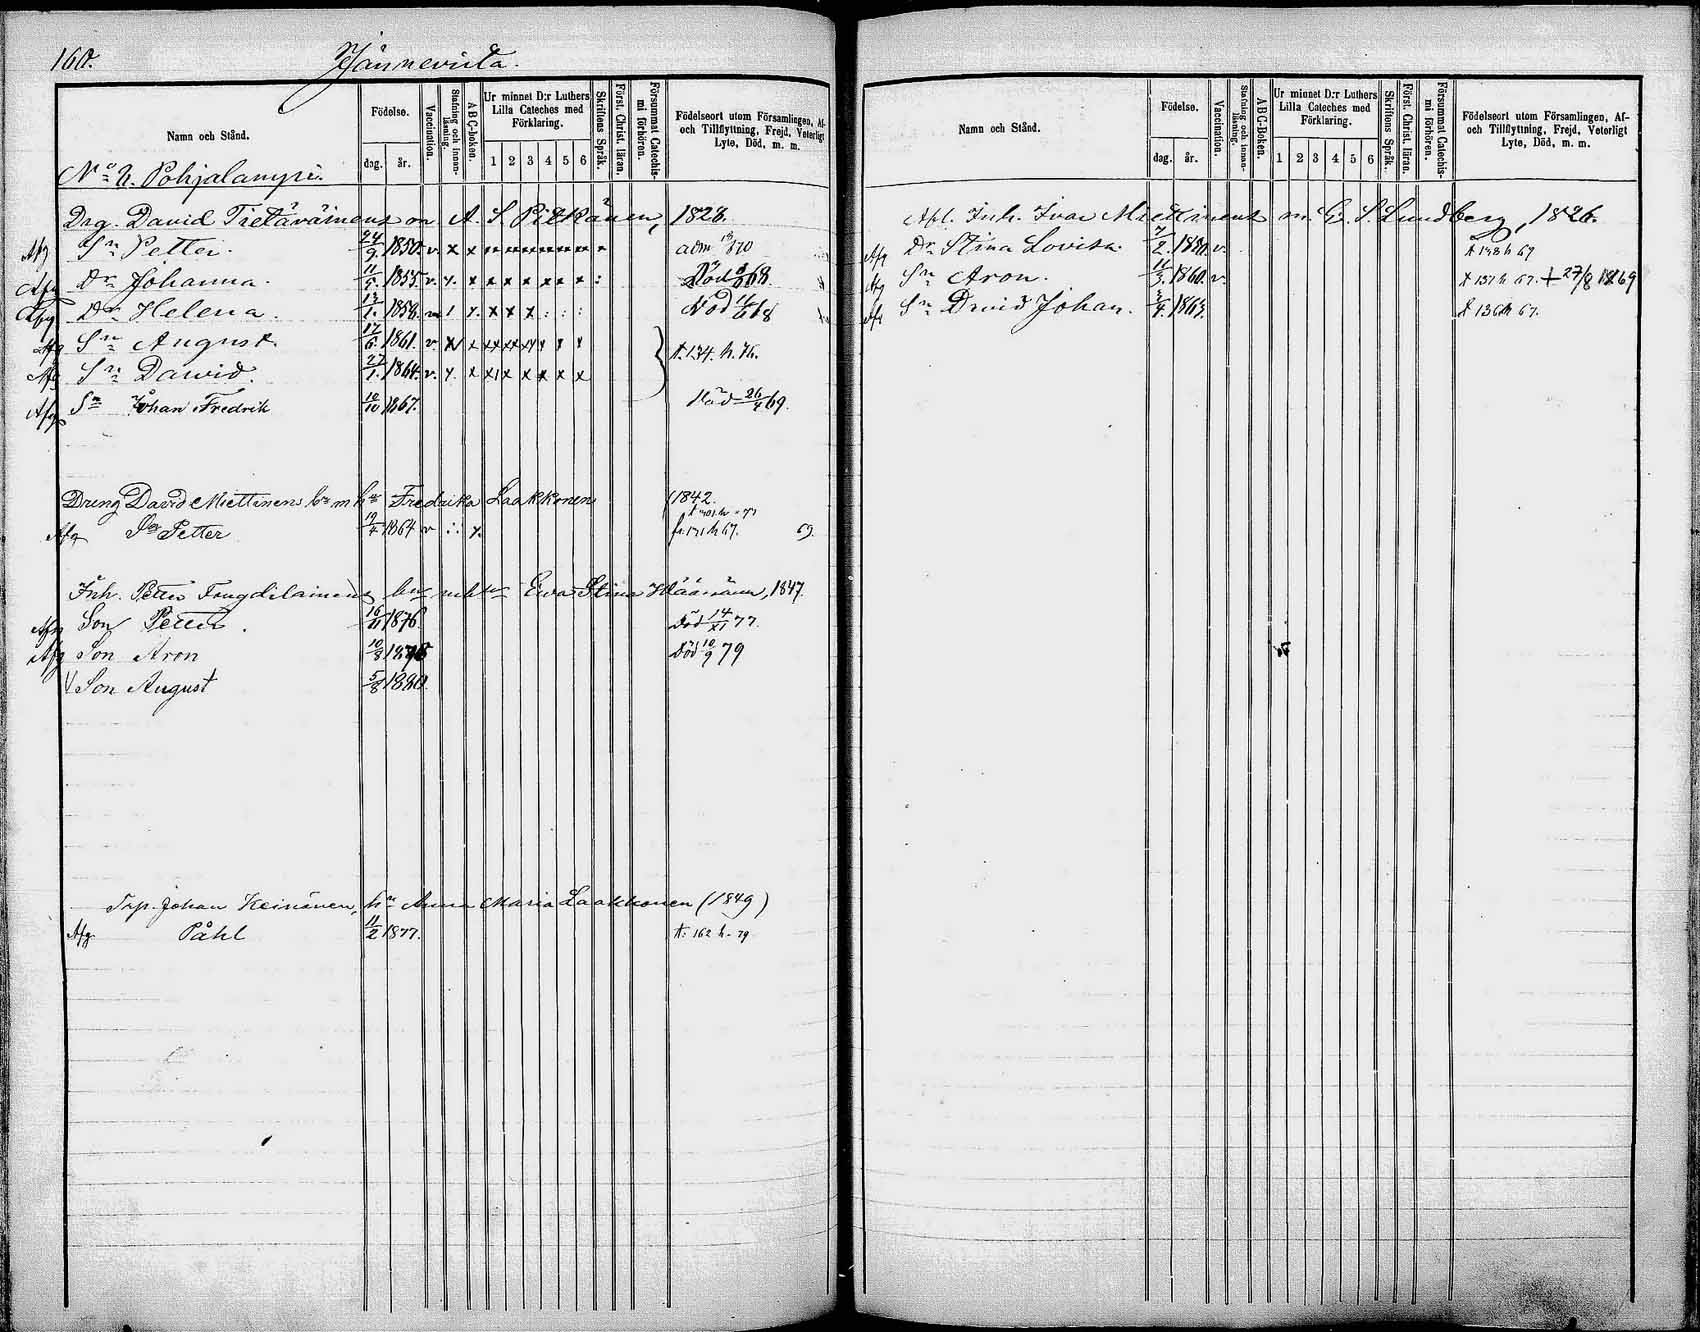 160.
Jännevirta.
Namn och Stånd.
Födelse.
dag. år.
Vaccination.
Stafning och Innan-läsning.
ABC-boken.
Ur minnet D:r Luthers Lilla Cateches med Förklaring.
1 2 3 4 5 6
Skriftens Språk.
Först. Christ. läran.
Försummat Catechis-mi förhören.
Födelseort utom Församlingen, Af- och Tillflyttning, Frejd, Veterligt Lyte, Död, m. m.
Drg. David Tietäväinens m A. S. Pitkänen, 1828.
Afg Sn Petter. 24/9 1850. v. x x adm 1870
Afg Dr Johanna. 11/5 1855. v. x x x x x x x : Död 68.
Afg Dr Helena. 13/1. 1858. x x x : : : Död 68
Afg Sn August. 17/6 1861. v.
Afg Sn David. 27/1. 1864. v. x x x x x x t. 134. h. 76.
Afg Sn Johan Fredrik 10/10 1867. Död 26/4 69.
Dreng David Miettinens hu m hu Fredrika Laakkonen (1842.
Afg Sn Petter 19/4 1864 v fr. 171 h 67. 69.
Inh. Petter hu Ewa Stina 1847.
Afg Son Petter. 16/11 1876 Död 14/XI 77.
Afg Son Aron 10/8 1878 Död 10/9 79
Son August 5/8 1880.
Johan Keinänen, hn Anna Maria Laakkonen (1849)
Afg. Påhl 11/2 1877. t: 162 h. 79
Namn och Stånd.
Födelse.
dag. år.
Vaccination.
Stafning och Innan-läsning.
ABC-Boken.
Ur minnet D:r Luthers Lilla Cateches med Förklaring.
1 2 3 4 5 6
Skriftens Språk.
Först. Christ. läran.
Försummat Catechis-mi förhören.
Födelseort utom Församlingen, Af- och Tillflyttning, Frejd, Veterligt Lyte, Död, m. m.
Inh. Ivar Miettinens m. S. Lundberg, 1826.
Afg Dr Stina Lovisa. v. t 138 h 67
Afg Sn Aron. 1860. v. t 137 h 67. + 27/8 1869
Afg Sn David Johan. 1863. t 136 h 67.